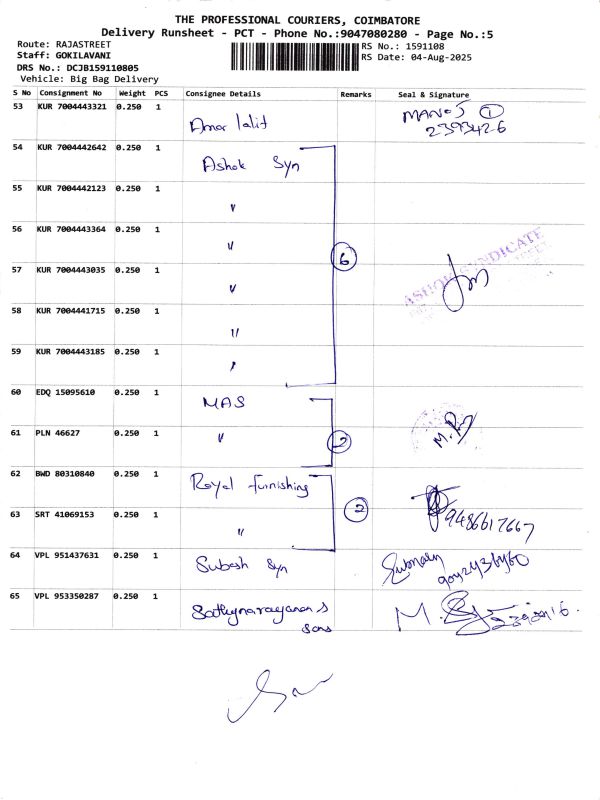 THE PROFESSIONAL COURIERS, COIMBATORE
Delivery Runsheet - PCT - Phone No.:9047080280 - Page No.:5
Route: RAJASTREET
Staff: GOKILAVANI
DRS No.: DCJB159110805
Vehicle: Big Bag Delivery
RS No.: 1591108
RS Date: 04-Aug-2025
S No Consignment No Weight PCS Consignee Details Remarks Seal & Signature
53 KUR 7004443321 0.250 1 Amar lalit MANOJ 1
2393426
54 KUR 7004442642 0.250 1 Ashok Syn
55 KUR 7004442123 0.250 1 "
56 KUR 7004443364 0.250 1 " 6
57 KUR 7004443035 0.250 1 " ASHOK SYNDICATE
58 KUR 7004441715 0.250 1 "
59 KUR 7004443185 0.250 1 "
60 EDQ 15095610 0.250 1 MAS
61 PLN 46627 0.250 1 " 2
62 BWD 80310840 0.250 1 Royal furnishing 2
63 SRT 41069153 0.250 1 " 9486617667
64 VPL 951437631 0.250 1 Subash Syn
65 VPL 953350287 0.250 1 Sathynarayanan s
sons